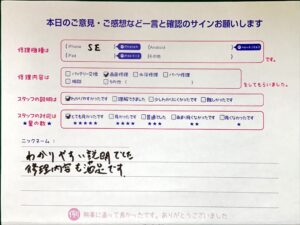 本日のご意見・ご感想など一言と確認のサインお願いします
修理機種は
iPhone SE
Android
iPad
その他
です。
修理内容は
バッテリー交換 画面修理 水没修理 パーツ修理
その他
をしてもらいました。
スタッフの説明は
わかりやすかったです 理解できました 少しわかりにくかったです 難しかったです
スタッフの対応は
★星の数★
とても良かったです 良かったです 普通でした
★★★★★ ★★★★ ★★★ ★★ ★
ニックネーム:
わかりやすい説明でした
修理内容も満足です。
無事に直って良かったです。ありがとうございました